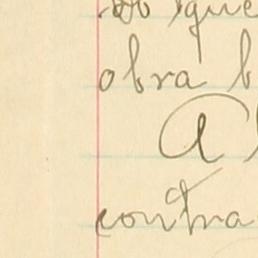 do que
obra b
A
contra